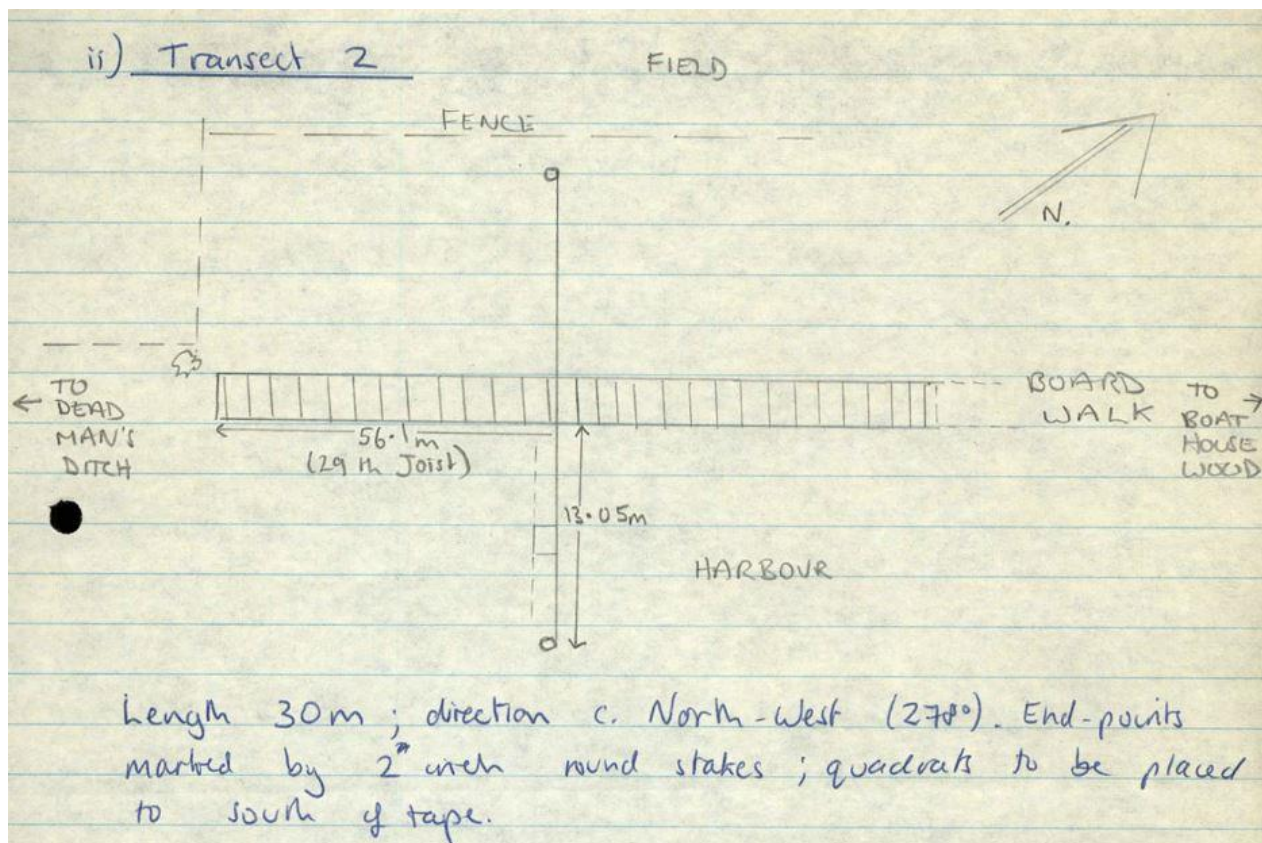 ii) Transect 2
FIELD
FENCE
N.
← TO DEAD MAN'S DITCH
BOARD WALK
TO BOAT HOUSE WOOD →
56.1m
(29th Joist)
13.05m
HARBOUR
Length 30m ; direction c. North-West (278°). End-points
marked by 2" inch round stakes ; quadrats to be placed
to south of tape.